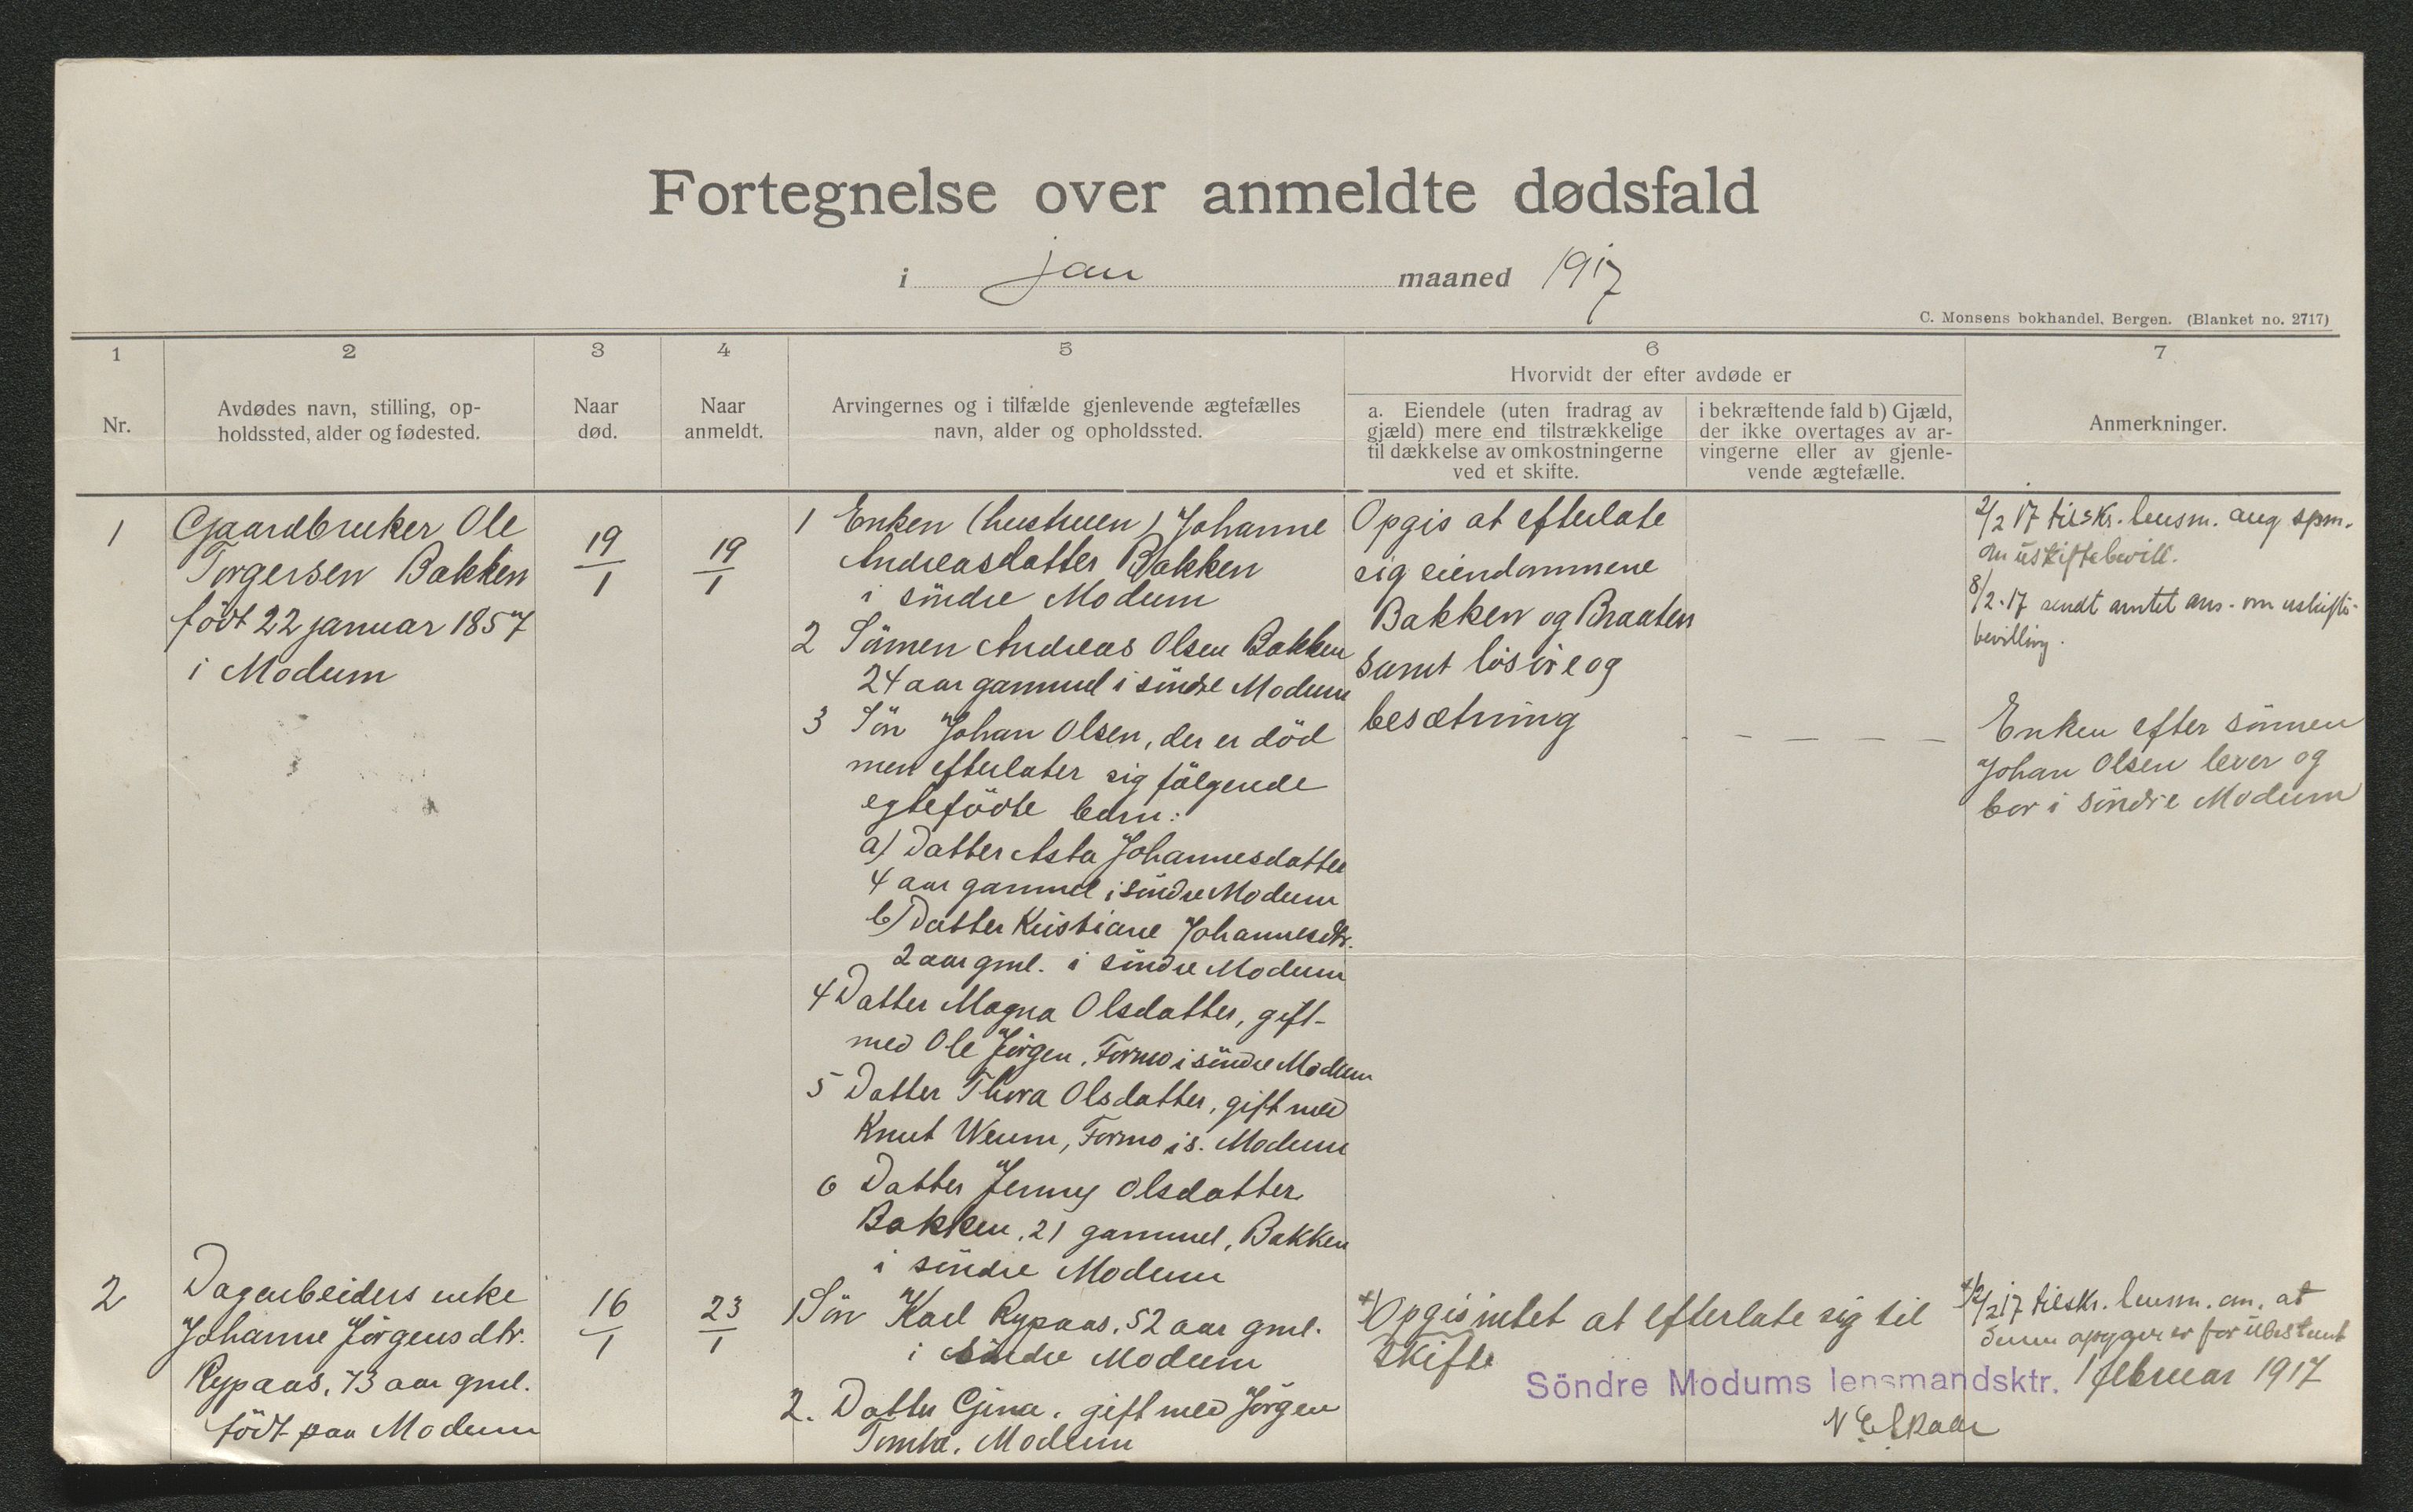 Fortegnelse over anmeldte dødsfald
i jan maaned 1917
C. Monsens bokhandel, Bergen. (Blanket no. 2717)
1
Nr.
2
Avdødes navn, stilling, op-
holdssted, alder og fødested.
3
Naar
død.
4
Naar
anmeldt.
5
Arvingernes og i tilfælde gjenlevende ægtefælles
navn, alder og opholdssted.
6
Hvorvidt der efter avdøde er
a. Eiendele (uten fradrag av
gjæld) mere end tilstrækkelige
til dækkelse av omkostningerne
ved et skifte.
i bekræftende fald b) Gjæld,
der ikke overtages av ar-
vingerne eller av gjenle-
vende ægtefælle.
7
Anmerkninger.
1
Gaardbruker Ole
Torgersen Bakken
født 22 januar 1857
i Modum
19/1
19/1
1 Enken (hustruen) Johanne
Andreasdatter Bakken
i söndre Modum
2 Sönnen Andreas Olsen Bakken
24 aar gammel i söndre Modum
3 Sön Johan Olsen, der er död
men efterlater sig fölgende
egtefödte barn:
a) Datter Asta Johannesdatter
4 aar gammel i söndre Modum
b) Datter Kristiane Johannesdtr.
2 aar gml. i söndre Modum
4 Datter Magna Olsdatter, gift
med Ole Jörgen, Formo i söndre Modum
5 Datter Thora Olsdatter, gift med
Knut Weum, Formo i s. Modum
6 Datter Jenny Olsdatter
Bakken, 21 gammel, Bakken
i söndre Modum
Opgis at efterlate
sig eiendommene
Bakken og Braaten
samt lösöre og
besætning
– – – – –
2/2 17 tilskr. lensm. ang spm.
om uskiftebevill.
8/2.17 sendt amtet ans. om uskifte-
bevilling.
Enken efter sönnen
Johan Olsen lever og
bor i söndre Modum
2
Dagarbeiders enke
Johanne Jörgensdtr.
Rypaas, 73 aar gml.
födt paa Modum
16/1
23/1
1 Sön Karl Rypaas, 52 aar gml.
i söndre Modum
2. Datter Gina, gift med Jörgen
Tomta, Modum
+) Opgis intet at efterlate sig til
skifte
+) 2/2 17 tilskr. lensm. om, at
denne opgave er for ubestemt
Söndre Modums lensmandsktr. 1 februar 1917